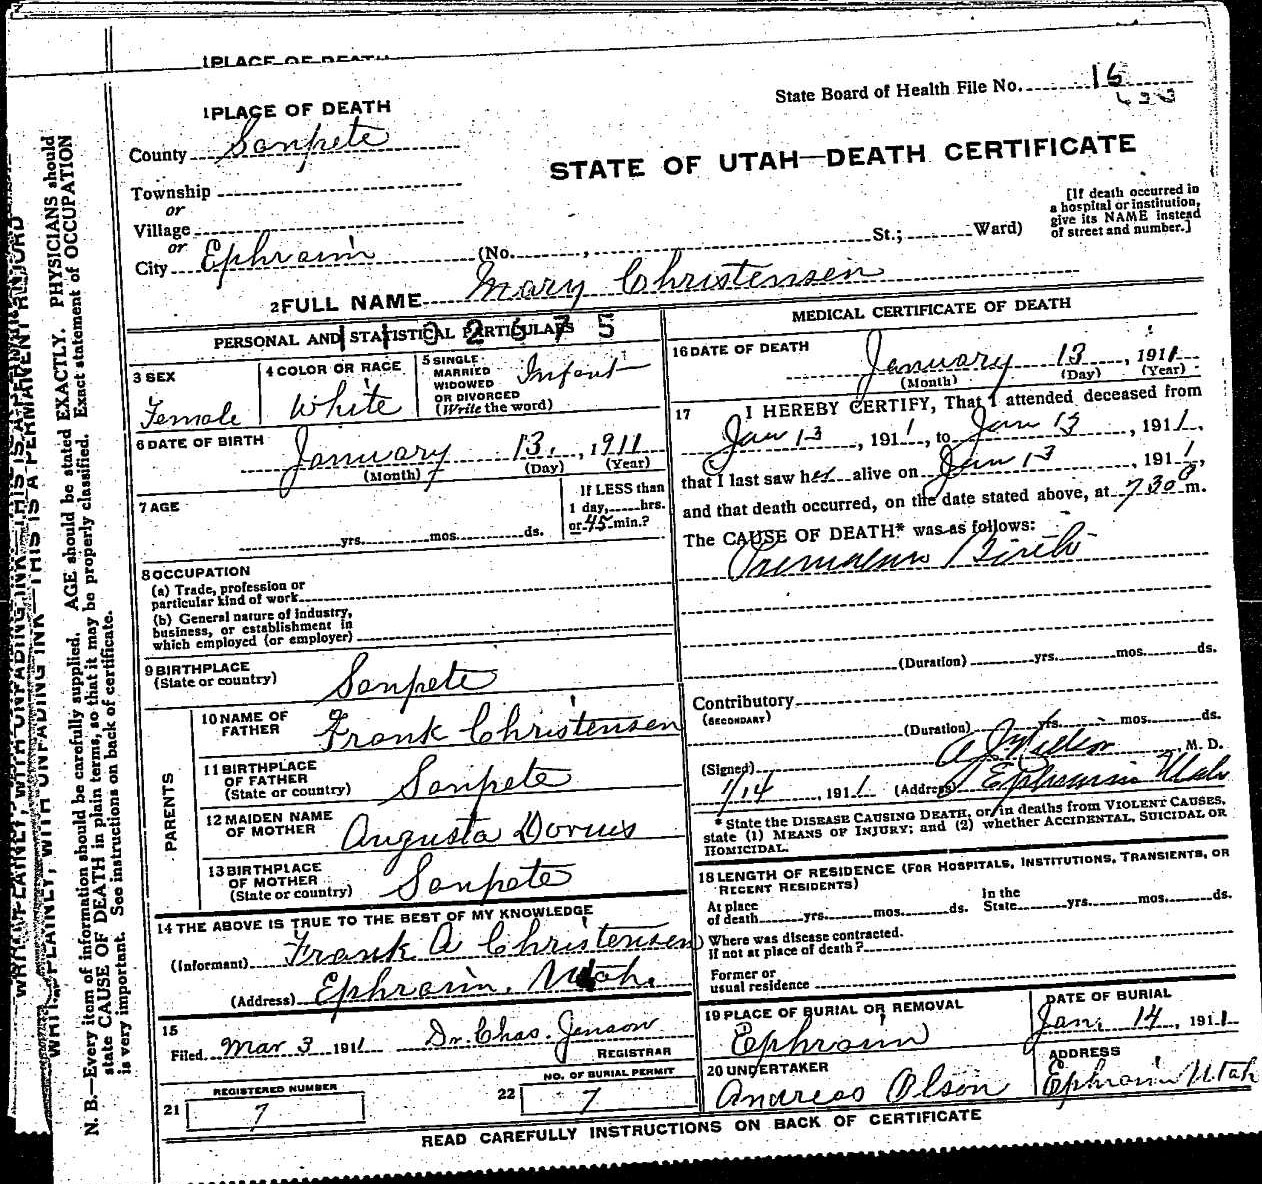 1 PLACE OF DEATH
1 PLACE OF DEATH
State Board of Health File No. 16
County Sanpete
STATE OF UTAH—DEATH CERTIFICATE
Township
or
Village
or
City Ephraim (No. , St.; Ward)
[If death occurred in
a hospital or institution,
give its NAME instead
of street and number.]
2 FULL NAME Mary Christensen
PERSONAL AND STATISTICAL PARTICULARS
1102675
3 SEX
Female
4 COLOR OR RACE
White
5 SINGLE
MARRIED
WIDOWED
OR DIVORCED
(Write the word)
Infant
6 DATE OF BIRTH
January 13, 1911
(Month) (Day) (Year)
7 AGE
yrs. mos. ds.
If LESS than
1 day, hrs.
or 45 min.?
8 OCCUPATION
(a) Trade, profession or
particular kind of work
(b) General nature of industry,
business, or establishment in
which employed (or employer)
9 BIRTHPLACE
(State or country)
Sanpete
PARENTS
10 NAME OF
FATHER
Frank Christensen
11 BIRTHPLACE
OF FATHER
(State or country)
Sanpete
12 MAIDEN NAME
OF MOTHER
Augusta Dorius
13 BIRTHPLACE
OF MOTHER
(State or country)
Sanpete
14 THE ABOVE IS TRUE TO THE BEST OF MY KNOWLEDGE
(Informant) Frank A Christensen
(Address) Ephraim, Utah.
15
Filed Mar 3 1911 Dr. Chas. Jenson
REGISTRAR
REGISTERED NUMBER
21 7
NO. OF BURIAL PERMIT
22 7
MEDICAL CERTIFICATE OF DEATH
16 DATE OF DEATH
January 13, 1911
(Month) (Day) (Year)
17 I HEREBY CERTIFY, That I attended deceased from
Jan 13, 1911, to Jan 13, 1911,
that I last saw her alive on Jan 13, 1911,
and that death occurred, on the date stated above, at 730 m.
The CAUSE OF DEATH* was as follows:
Premature Birth
(Duration) yrs. mos. ds.
Contributory
(SECONDARY)
(Duration) yrs. mos. ds.
(Signed) M. D.
1/14, 1911 (Address) Ephraim Utah
* State the DISEASE CAUSING DEATH, or, in deaths from VIOLENT CAUSES,
state (1) MEANS OF INJURY; and (2) whether ACCIDENTAL, SUICIDAL OR
HOMICIDAL.
18 LENGTH OF RESIDENCE (FOR HOSPITALS, INSTITUTIONS, TRANSIENTS, OR
RECENT RESIDENTS)
At place
of death yrs. mos. ds.
In the
State yrs. mos. ds.
Where was disease contracted.
If not at place of death?
Former or
usual residence
19 PLACE OF BURIAL OR REMOVAL
Ephraim
DATE OF BURIAL
Jan. 14, 1911
20 UNDERTAKER
Andreas Olson
ADDRESS
Ephraim Utah
READ CAREFULLY INSTRUCTIONS ON BACK OF CERTIFICATE
WRITE PLAINLY, WITH UNFADING INK THIS IS A PERMANENT RECORD
N. B.—Every item of information should be carefully supplied. AGE should be stated EXACTLY. PHYSICIANS should
state CAUSE OF DEATH in plain terms, so that it may be properly classified. Exact statement of OCCUPATION
is very important. See instructions on back of certificate.